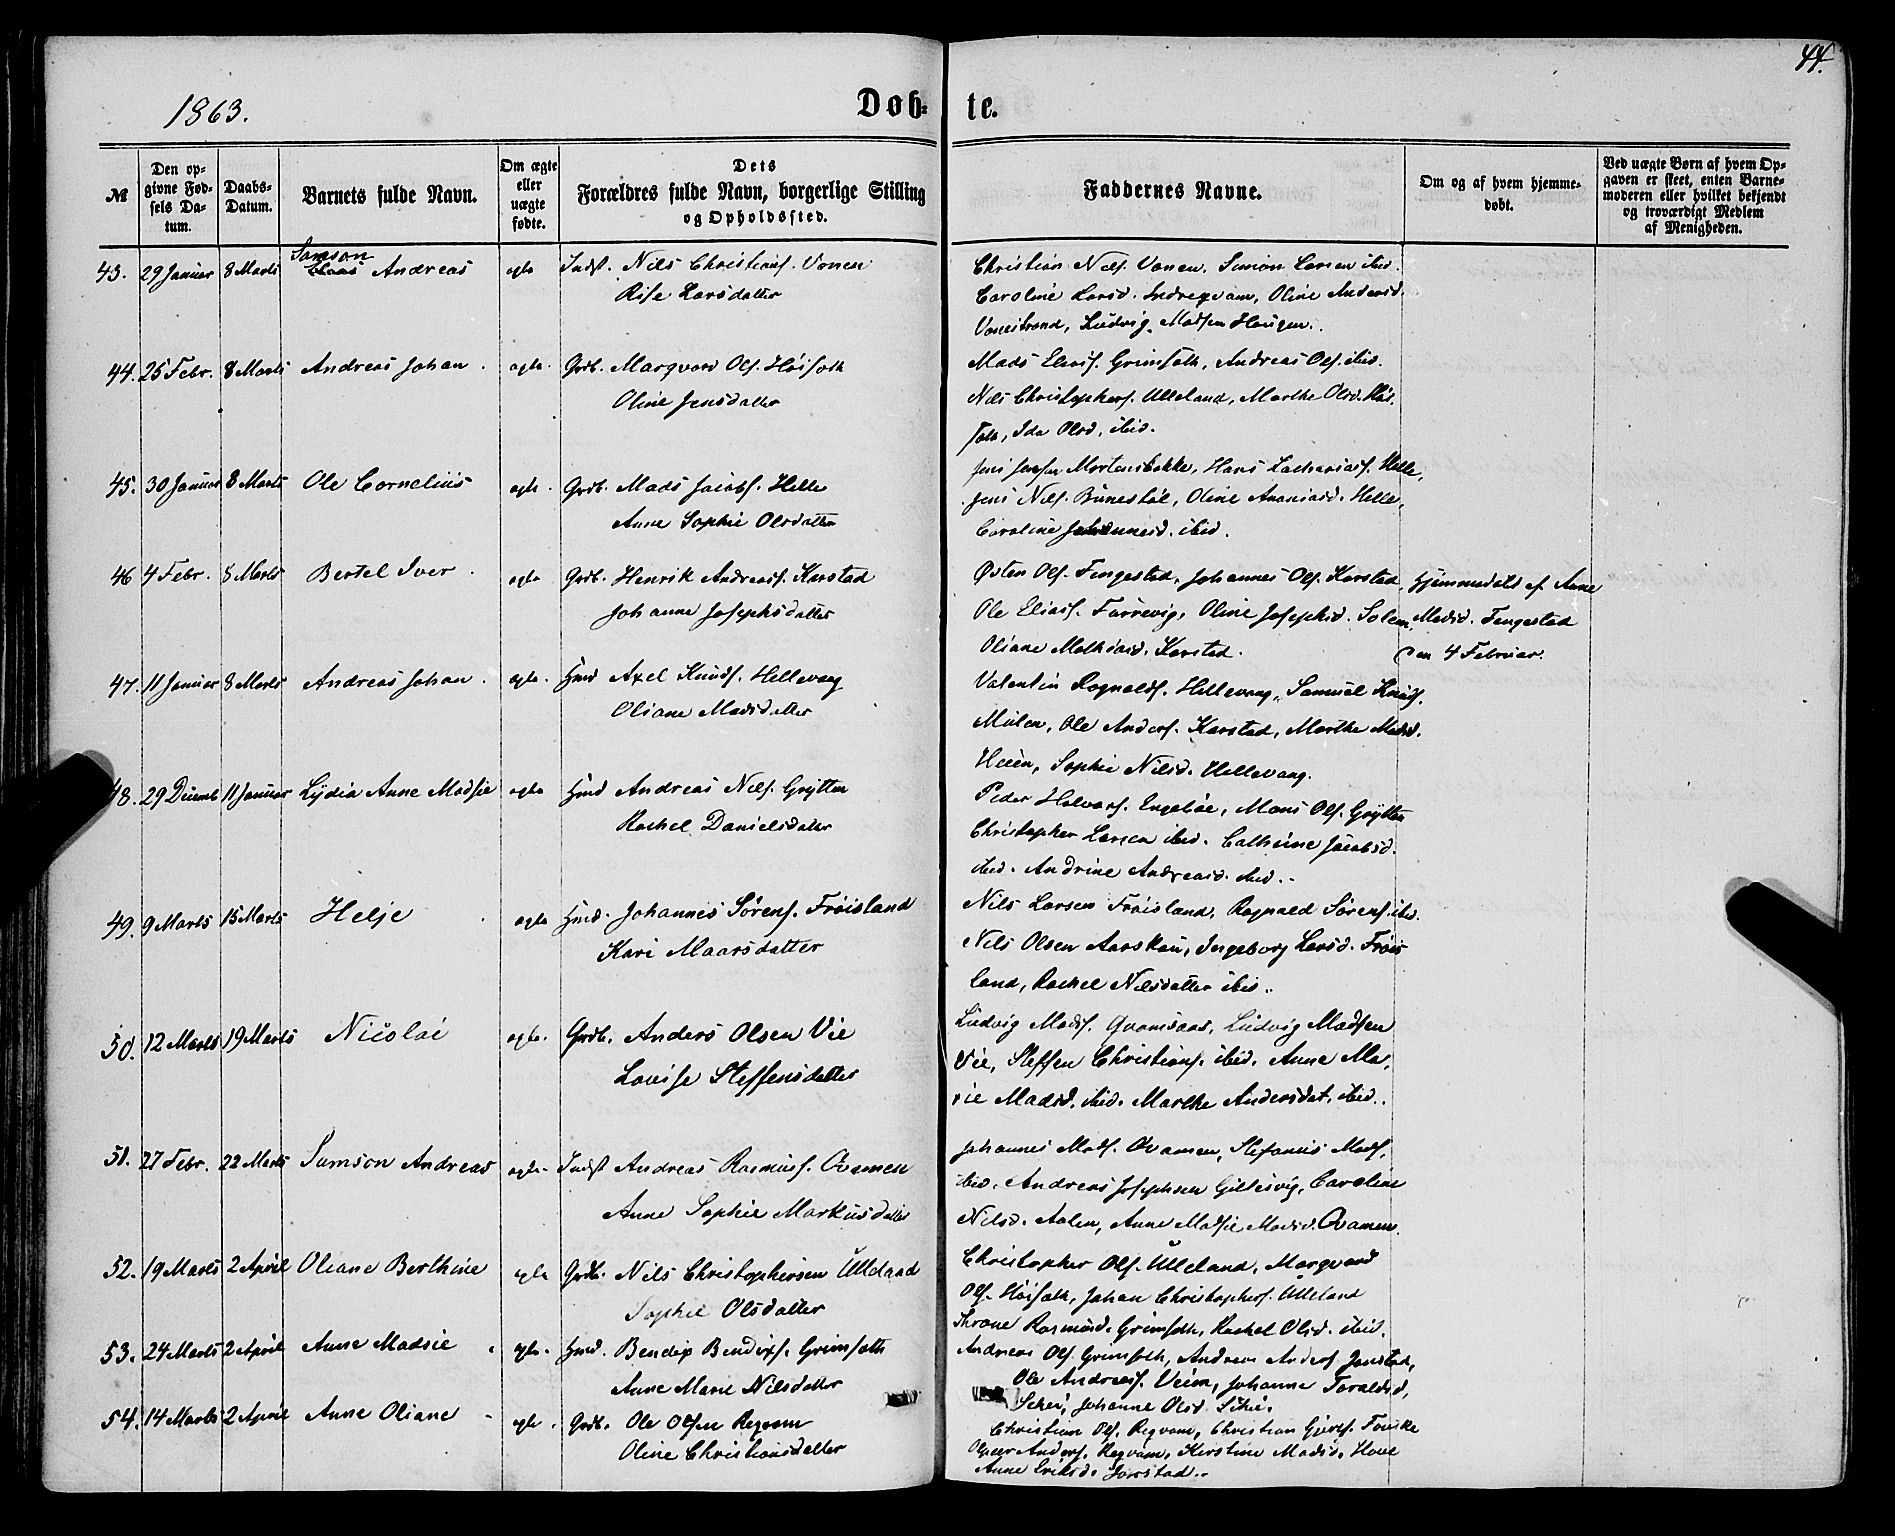 44.
1863.
Døb- te.
№
Den opgivne Fødsels Datum.
Daabs-Datum.
Barnets fulde Navn.
Om ægte eller uægte fødte.
Dets Forældres fulde Navn, borgerlige Stilling og Opholdssted.
Faddernes Navne.
Om og af hvem hjemmedøbt.
Ved uægte Børn af hvem Opgaven er skeet, enten Barnemoderen eller hvilket bekjendt og troværdigt Medlem af Menigheden.
43. 29 Januar 8 Marts Samson Andreas ægte Indst. Nils Christians. Vonen
Rise Larsdatter
Christian Nils. Vonen, Simon Larsen ibid.
Caroline Larsd. Indreqvam, Oline Andersd.
Vonestrand, Ludvig Madsen Haugen.
44. 25 Febr. 8 Marts Andreas Johan ægte Grdb. Marqvard Ols. Høisæth
Oline Jensdatter
Mads Elias. Grimsæth, Andreas Ols. ibid.
Nils Christophers. Ulleland, Marthe Olsd. Høi-
sæth, Ida Olsd. ibid.
45. 30 Januar 8 Marts Ole Cornelius ægte Grdb. Mads Jacobs. Helle
Anne Sophie Olsdatter
Jens Jensen Mortensbakke, Hans Zachariass. Helle,
Jens Nils. Bunestøl, Oline Ananiasd. Helle,
Caroline Johannesd. ibid.
46 4 Febr. 8 Marts Bertel Iver ægte Grdb. Henrik Andreas. Karstad
Johanne Josephsdatter
Østen Ols. Fengestad, Johannes Ols. Karstad,
Ole Elias. Farrevig, Oline Josephsd. Solem,
Oliane Mathiasd. Karstad.
Hjemmedøbt af Anne
Madsd. Fengestad
den 4 Februar.
47. 11 Januar 8 Marts Andreas Johan ægte Hmd Axel Knuds. Hellevang
Oliane Madsdatter
Valentin Rognalds. Hellevang, Samuel Knuds.
Mulen, Ole Anders. Karstad, Marthe Madsd.
Heien, Sophie Nilsd. Hellevang.
48. 29 Decemb 11 Januar Lydia Anne Madsie ægte Hmd Andreas Nils. Grytten
Rachel Danielsdatter
Peder Halvors. Engebøe, Mons Ols. Grytten
Christopher Larsen ibid. Cathrine Jacobsd.
ibid. Andrine Andreasd. ibid.
49. 9 Marts 15 Marts Helje ægte Hmd. Johannes Sørens. Frøisland
Kari Maarsdatter
Nils Larsen Frøisland, Rognald Sørens. ibid.
Nils Olsen Aarskau, Ingeborg Larsd. Frøis-
land, Rachel Nilsdatter ibid.
50. 12 Marts 19 Marts Nicolai ægte Grdb. Anders Olsen Vie
Lovise Steffensdatter
Ludvig Mads. Qvamsaas, Ludvig Madsen
Vie, Steffen Christians. ibid. Anne Ma-
rie Madsd. ibid. Marthe Andersdat. ibid.
51. 27 Febr. 22 Marts Samson Andreas ægte Indst Andreas Rasmus. Qvamen
Anne Sophie Markusdatter
Johannes Mads. Qvamen, Stefanus Mads.
ibid. Andreas Josephsen Gillesvig, Caroline
Nilsd. Aalen, Anne Madsie Madsd. Qvamen.
52. 19 Marts 2 April Oliane Berthine ægte Grdb. Nils Christophersen Ulleland
Sophie Olsdatter
Christopher Ols. Ulleland, Marqvard
Ols. Høisæth, Johan Christophers. Ulleland
Throne Rasmusd. Grimsæth, Rachel Olsd. ibid.
53. 24 Marts 2 April Anne Madsie ægte Hmd. Bendix Bendixs. Grimsæth
Anne Marie Nilsdatter
Andreas Ols. Grimsæth, Andreas Anders Jonstad,
Ole Andreas. Veien, Johanne Taraldsd.
Johanne Olsd.
54. 14 Marts 2 April Anne Oliane ægte Grdb. Ole Olsen Reqvam
Oline Christiansdatter
Christian Ols. Reqvam, Christian
Anders. Reqvam, Kirstine Madsd. Hove
Anne Eriksd. Jonstad.